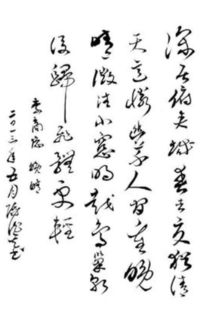 深居俯夹城春去夏犹清
天意怜幽草人间重晚
晴微注小窗明越鸟巢乾
後歸飞體更轻
李商隐 晚晴
二〇一三年五月